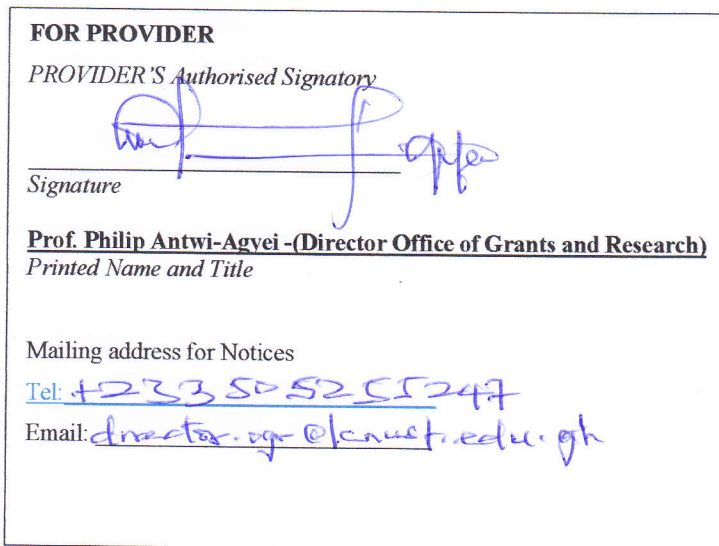 FOR PROVIDER
PROVIDER'S Authorised Signatory
Signature
Prof. Philip Antwi-Agyei -(Director Office of Grants and Research)
Printed Name and Title
Mailing address for Notices
Tel: +233 505255247
Email: director.ogr@knust.edu.gh